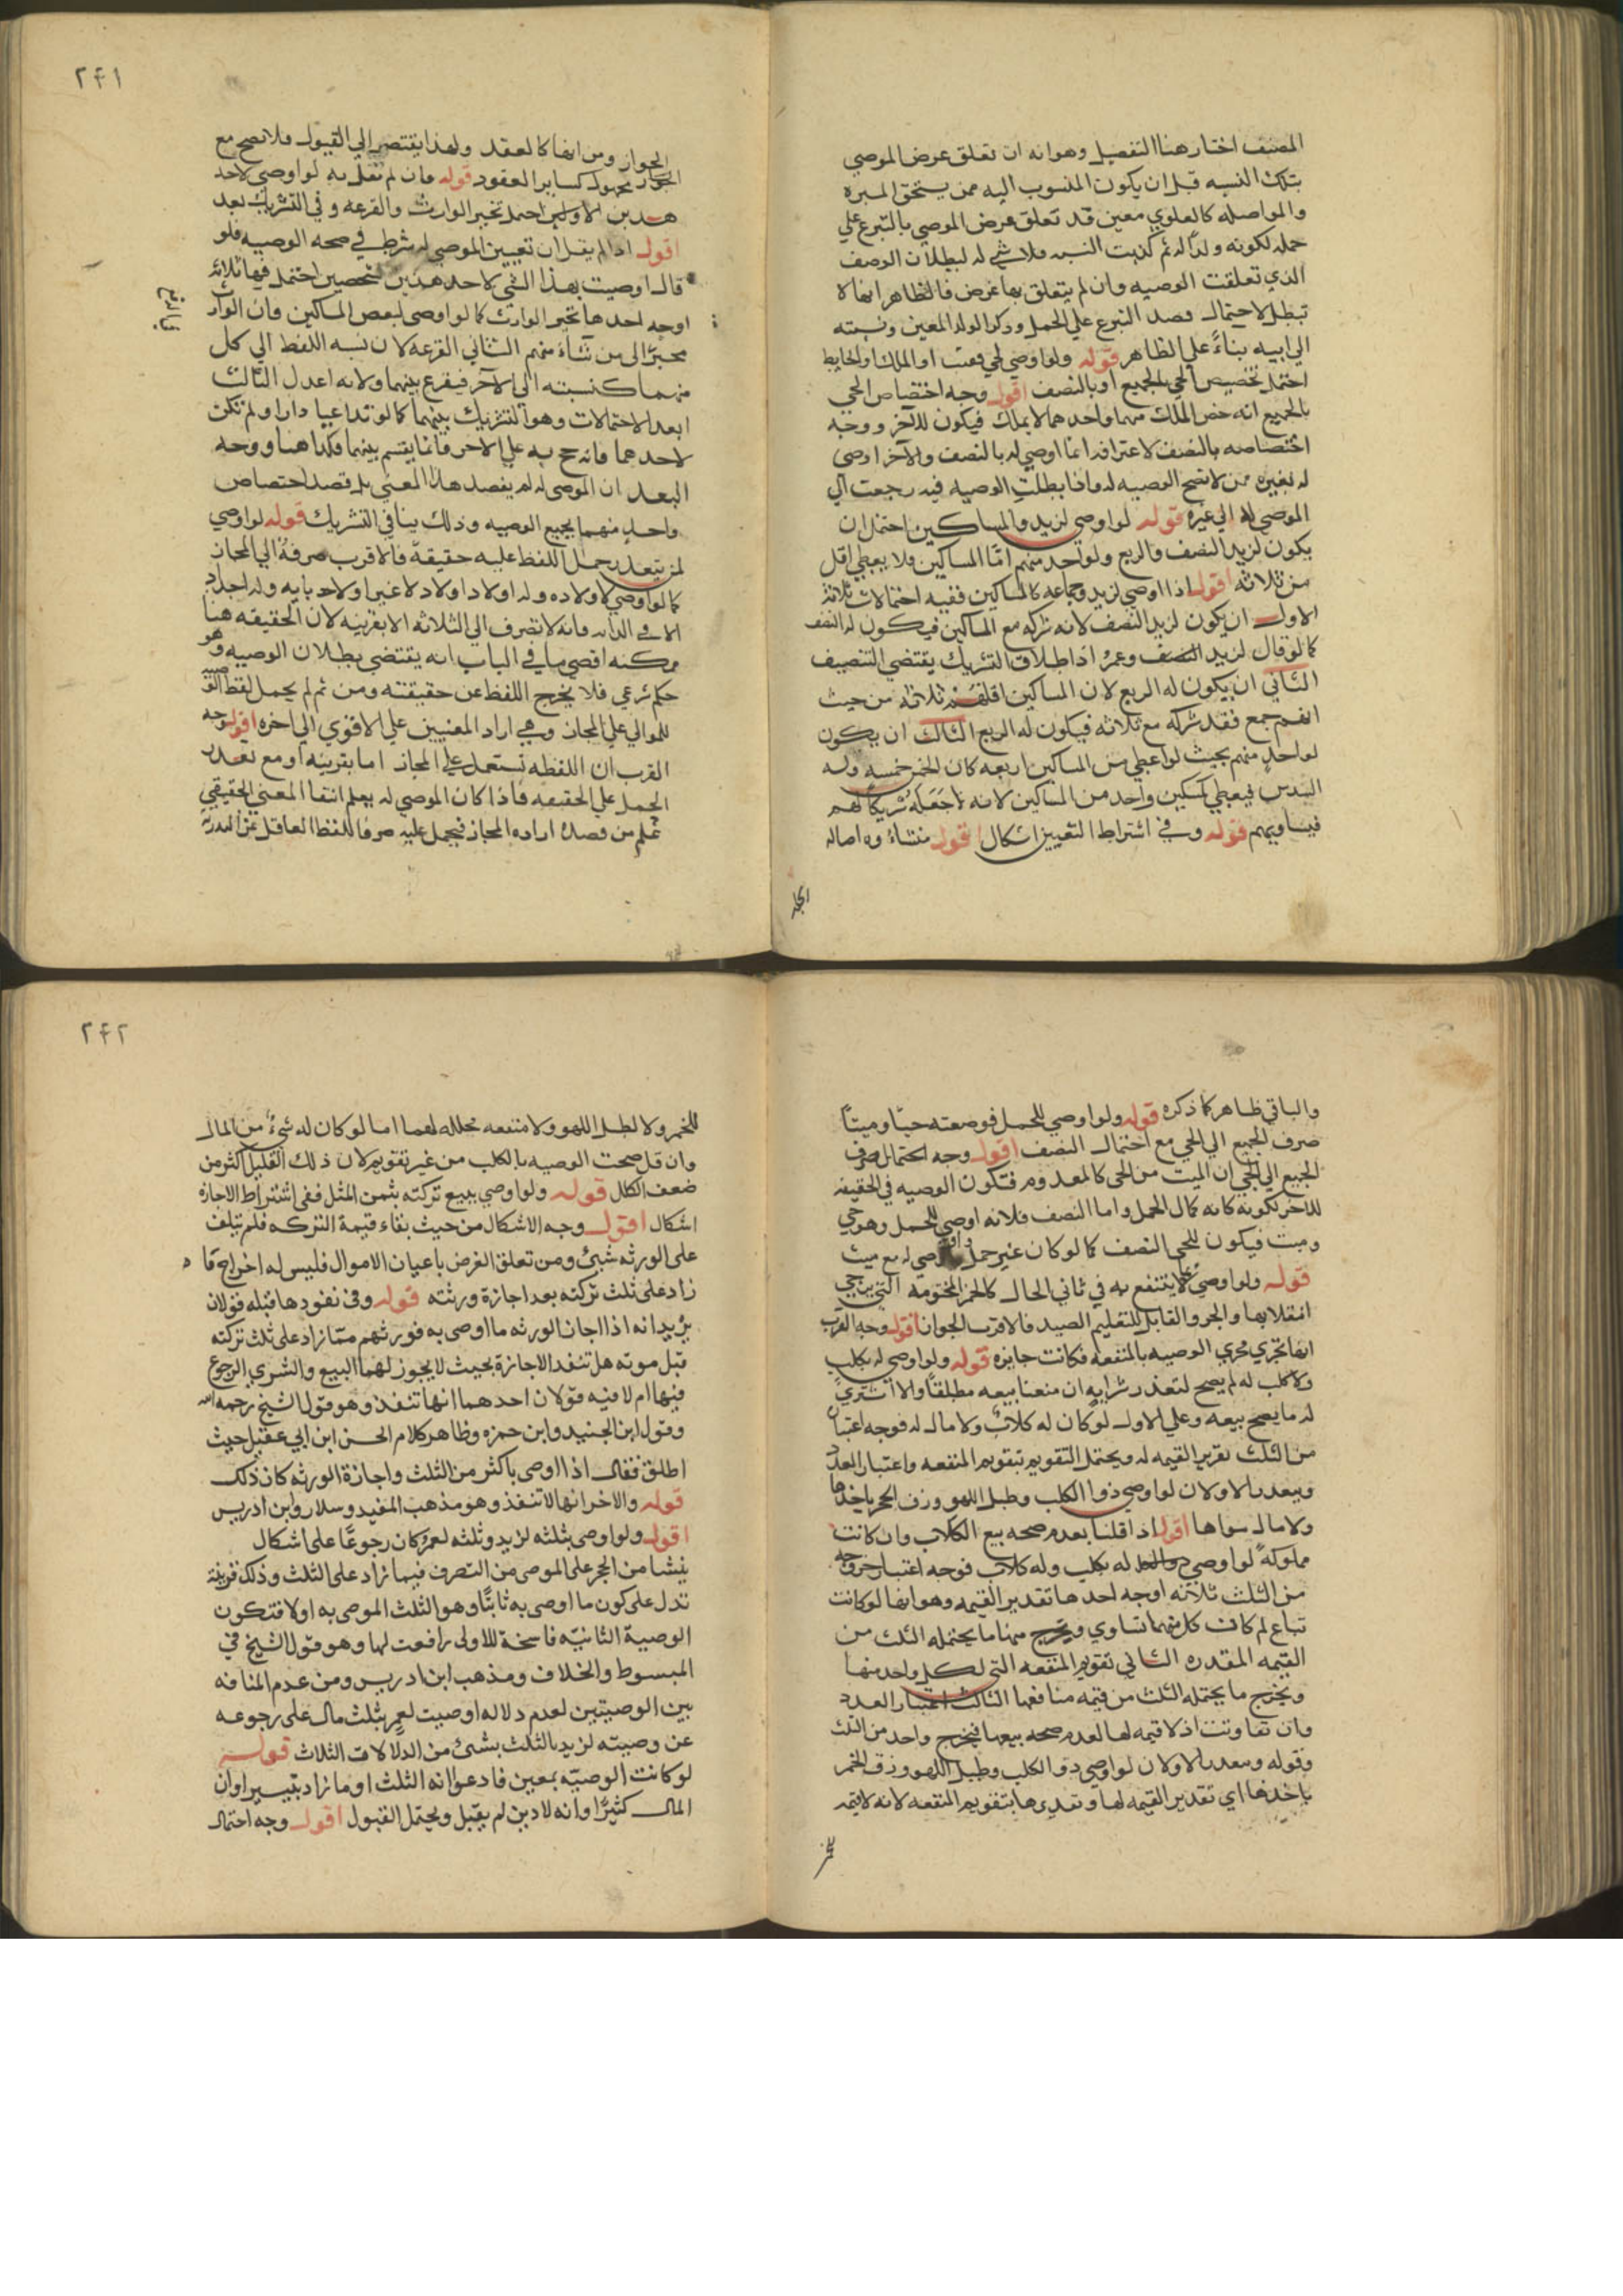 المصنف اختار هنا التفصيل وهو انه ان تعلق غرض الموصي
بتلك النسبه قبل ان يكون المنسوب اليه ممن يستحق المبره
والمواصله كالعلوي معين قد تعلق غرض الموصي بالتبرع علي
حمله لكونه ولدا له ثم كذبت النسبه فلا شي له لبطلان الوصف
الذي تعلقت الوصيه وان لم يتعلق بها غرض فالظاهر انها لا
تبطل لاحتمال قصد التبرع علي الحمل وذكر الولد المعين ونسبته
الي ابيه بناءً علي الظاهر قوله ولو اوصي لحي وميت او الملك او لحايط
احتمل تخصيص الحي بالجميع او بالنصف اقول وجه اختصاص الحي
بالجميع انه خص الملك بهما واحدهما لا يملك فيكون للاخر ووجه
اختصاصه بالنصف لاعترافه انما اوصي له بالنصف والاخر اوصي
له لغيره ممن لا تصح الوصيه له فاذا بطلت الوصيه فيه رجعت الي
الموصي لا الي غيره قوله لو اوصي لزيد والمساكين احتمل ان
يكون لزيد النصف والربع ولو احد منهم اما المساكين فلا يعطي اقل
من ثلاثه اقول اذا اوصي لزيد وجماعه كالمساكين ففيه احتمالات ثلاثة
الاول ان يكون لزيد النصف لانه شركه مع المساكين فيكون له النصف
كما لو قال لزيد النصف وعمرو اذ اطلاق التشريك يقتضي التنصيف
الثاني ان يكون له الربع لان المساكين اقلهم ثلاثه من حيث
انهم جمع فقد شركه مع ثلاثه فيكون له الربع الثالث ان يكون
لواحد منهم بحيث لو اعطي من المساكين اربعه كان الخمس خمسه وله
السدس فيعطي كمسكين واحد من المساكين لانه جعله شريكا لهم
فيساويهم قوله وفي اشتراط التعيين اشكال اقول منشاءوه اصاله
الجواز ومن انها كالعقد ولهذا يفتقر الي القبول فلا تصح مع
المجهول كساير العقود قوله فان لم نقل به لو اوصي لاحد
هذين الاولين احتمل تخير الوارث والقرعه وفي التشريك بعد
اقول اذا لم يقل ان تعيين الموصي له شرط في صحه الوصيه فلو
قال اوصيت بهذا الشي لاحد هذين الشخصين احتمل فيها ثلاثه
اوجه احدها تخير الوارث كما لو اوصي لبعض المساكين فان الوارث
مخير الي من شاء منهم الثاني القرعه لان نسبه اللفظ الي كل
منهما كنسبته الي الآخر فيقرع بينهما ولانه اعدل الثالث
ابعد الاحتمالات وهو التشريك بينهما كما لو تداعيا دارا ولم تكن
لاحدهما فانه حج به علي الاخر فانما يقسم بينهما فكذا هنا ووجه
البعد ان الموصي له لم يقصد هذا المعني بل قصد اختصاص
واحد منهما بجميع الوصيه وذلك ينافي التشريك قوله لو اوصي
لمن يتعذر حمل اللفظ عليه حقيقة فالاقرب صرفه الي المجاز
كما لو اوصي لاولاده وله اولاد اولاد لا غير او لاحد بايه وله اجداد
فانه لا تصرف الي الثلاثه الا بقرينه لان الحقيقه هنا
ممكنه اقصي ما في الباب انه يقتضي بطلان الوصيه وهو
حكم شرعي فلا يخرج اللفظ عن حقيقته ومن ثم لم يحمل لفظ الوصيه
للموالي علي المجاز وهي اراد المعنيين علي الاقوي الي اخره اقول وجه
القرب ان اللفظه تستعمل علي المجاز اما بقرينه او مع تعذر
الحمل علي الحقيقه فاذا كان الموصي له يعلم انتفا المعني الحقيقي
عُلم من قصده اراده المجاز فيحمل عليه صرفا للفظ العاقل عن الهذرية
والباقي ظاهر كما ذكره قوله ولو اوصي للحمل فوضعته حيا وميتا
صرف الجميع الي الحي مع احتمال النصف اقول وجه احتمال صرف
الجميع الي الحي ان الميت من الحي كالمعدوم فتكون الوصيه في الحقيقه
للاخر لكونه كانه كمال الحمل واما النصف فلانه اوصي للحمل وهو حي
وميت فيكون للحي النصف كما لو كان غير حمل اوصي له مع ميت
قوله ولو اوصي بما لا ينتفع به في ثاني الحال كالخمر المختومه التي يرجي
انقلابها والجرو القابل للتعليم الصيد فالاقرب الجواز اقول وجه القرب
انها تجري مجري الوصيه بالمنفعه فكانت جايزه قوله ولو اوصي له بكلب
ولا كلب له لم يصح لتعذر شرايه ان منعنا بيعه مطلقا والا اشتري
له ما يصح بيعه وعلي الاول لو كان له كلاب ولا مال له فوجه اعتبار
من الثلث تقرير القيمه له ويحتمل التقويم بتقويم المنفعه واعتبار العدد
وببعد بالاولان لو اوصي ذو الكلب وطبل اللهو وزق الخمر باخذها
ولا مال سواها اقول اذا قلنا بعدم صحه بيع الكلاب وان كانت
مملوكه لو اوصي له بكلب وله كلاب فوجه اعتبار خروجه
من الثلث ثلاثه اوجه احدها تقدير القيمه وهو انها لو كانت
تباع لم كانت كل منهما تساوي ويخرج منها ما يحتمله الثلث من
القيمه المقدره الثاني تقويم المنفعه التي لكل واحد منها
ويخرج ما يحتمله الثلث من قيمه منافعها الثالث اعتبار العدد
وان تفاوتت اذ لا قيمه لها لعدم صحه بيعها فيخرج واحد من الثلث
وقوله وببعد بالاولان لو اوصي ذو الكلب وطبل اللهو وزق الخمر
باخذها اي تقدير القيمه لها وتقديرها بتقويم المنفعه لانه لا قيمه
للخمر ولا لطبل اللهو ولا منفعه محلله لهما اما لو كان له شيء من المال
وان قل صحت الوصيه بالكلب من غير تقويم لان ذلك القليل اكثر من
ضعف الكل قوله ولو اوصي ببيع تركته بثمن المثل ففي اشتراط الاجازه
اشكال اقول وجه الاشكال من حيث بقاء قيمة التركه فلم يتلف
على الورثه شيئ ومن تعلق الغرض باعيان الاموال فليس له اخراج ما
زاد على ثلث تركته بعد اجازة ورثته قوله وفى نفودها قبله قولان
يريد انه اذا اجاز الورثه ما اوصى به فورثهم مما زاد على ثلث تركته
قبل موته هل تنفد الاجازة بحيث لا يجوز لهما البيع والشرى الرجوع
فيها ام لا فيه قولان احدهما انها تنفذ وهو قول الشيخ رحمه الله
وقول ابن الجنيد وابن حمزه وظاهر كلام الحسن ابن ابي عقيل حيث
اطلق فقال اذا اوصى باكثر من الثلث واجازة الورثه كان ذلك
قوله والاخر انها لا تنفذ وهو مذهب المفيد وسلار وابن ادريس
اقول ولو اوصى بثلثه لزيد وثلثه لعمرو كان رجوعًا على اشكال
ينشا من الحجر على الموصى من التصرف فيما زاد على الثلث وذلك قرينة
تدل على كون ما اوصى به ثابتًا وهو الثلث الموصى به اولا فتكون
الوصية الثانيه فاسخة للاولى رافعت لها وهو قول الشيخ في
المبسوط والخلاف ومذهب ابن ادريس ومن عدم المنافه
بين الوصيتين لعدم دلاله اوصيت لعمر بثلث مال على رجوعه
عن وصيته لزيد بالثلث بشئ من الدلالات الثلاث قوله
لو كانت الوصيّه بمعين فادعوا انه الثلث او ما زاد بيسير اوان
المال كثيرًا وانه لا دين لم يقبل ويحتمل القبول اقول وجه احتمال